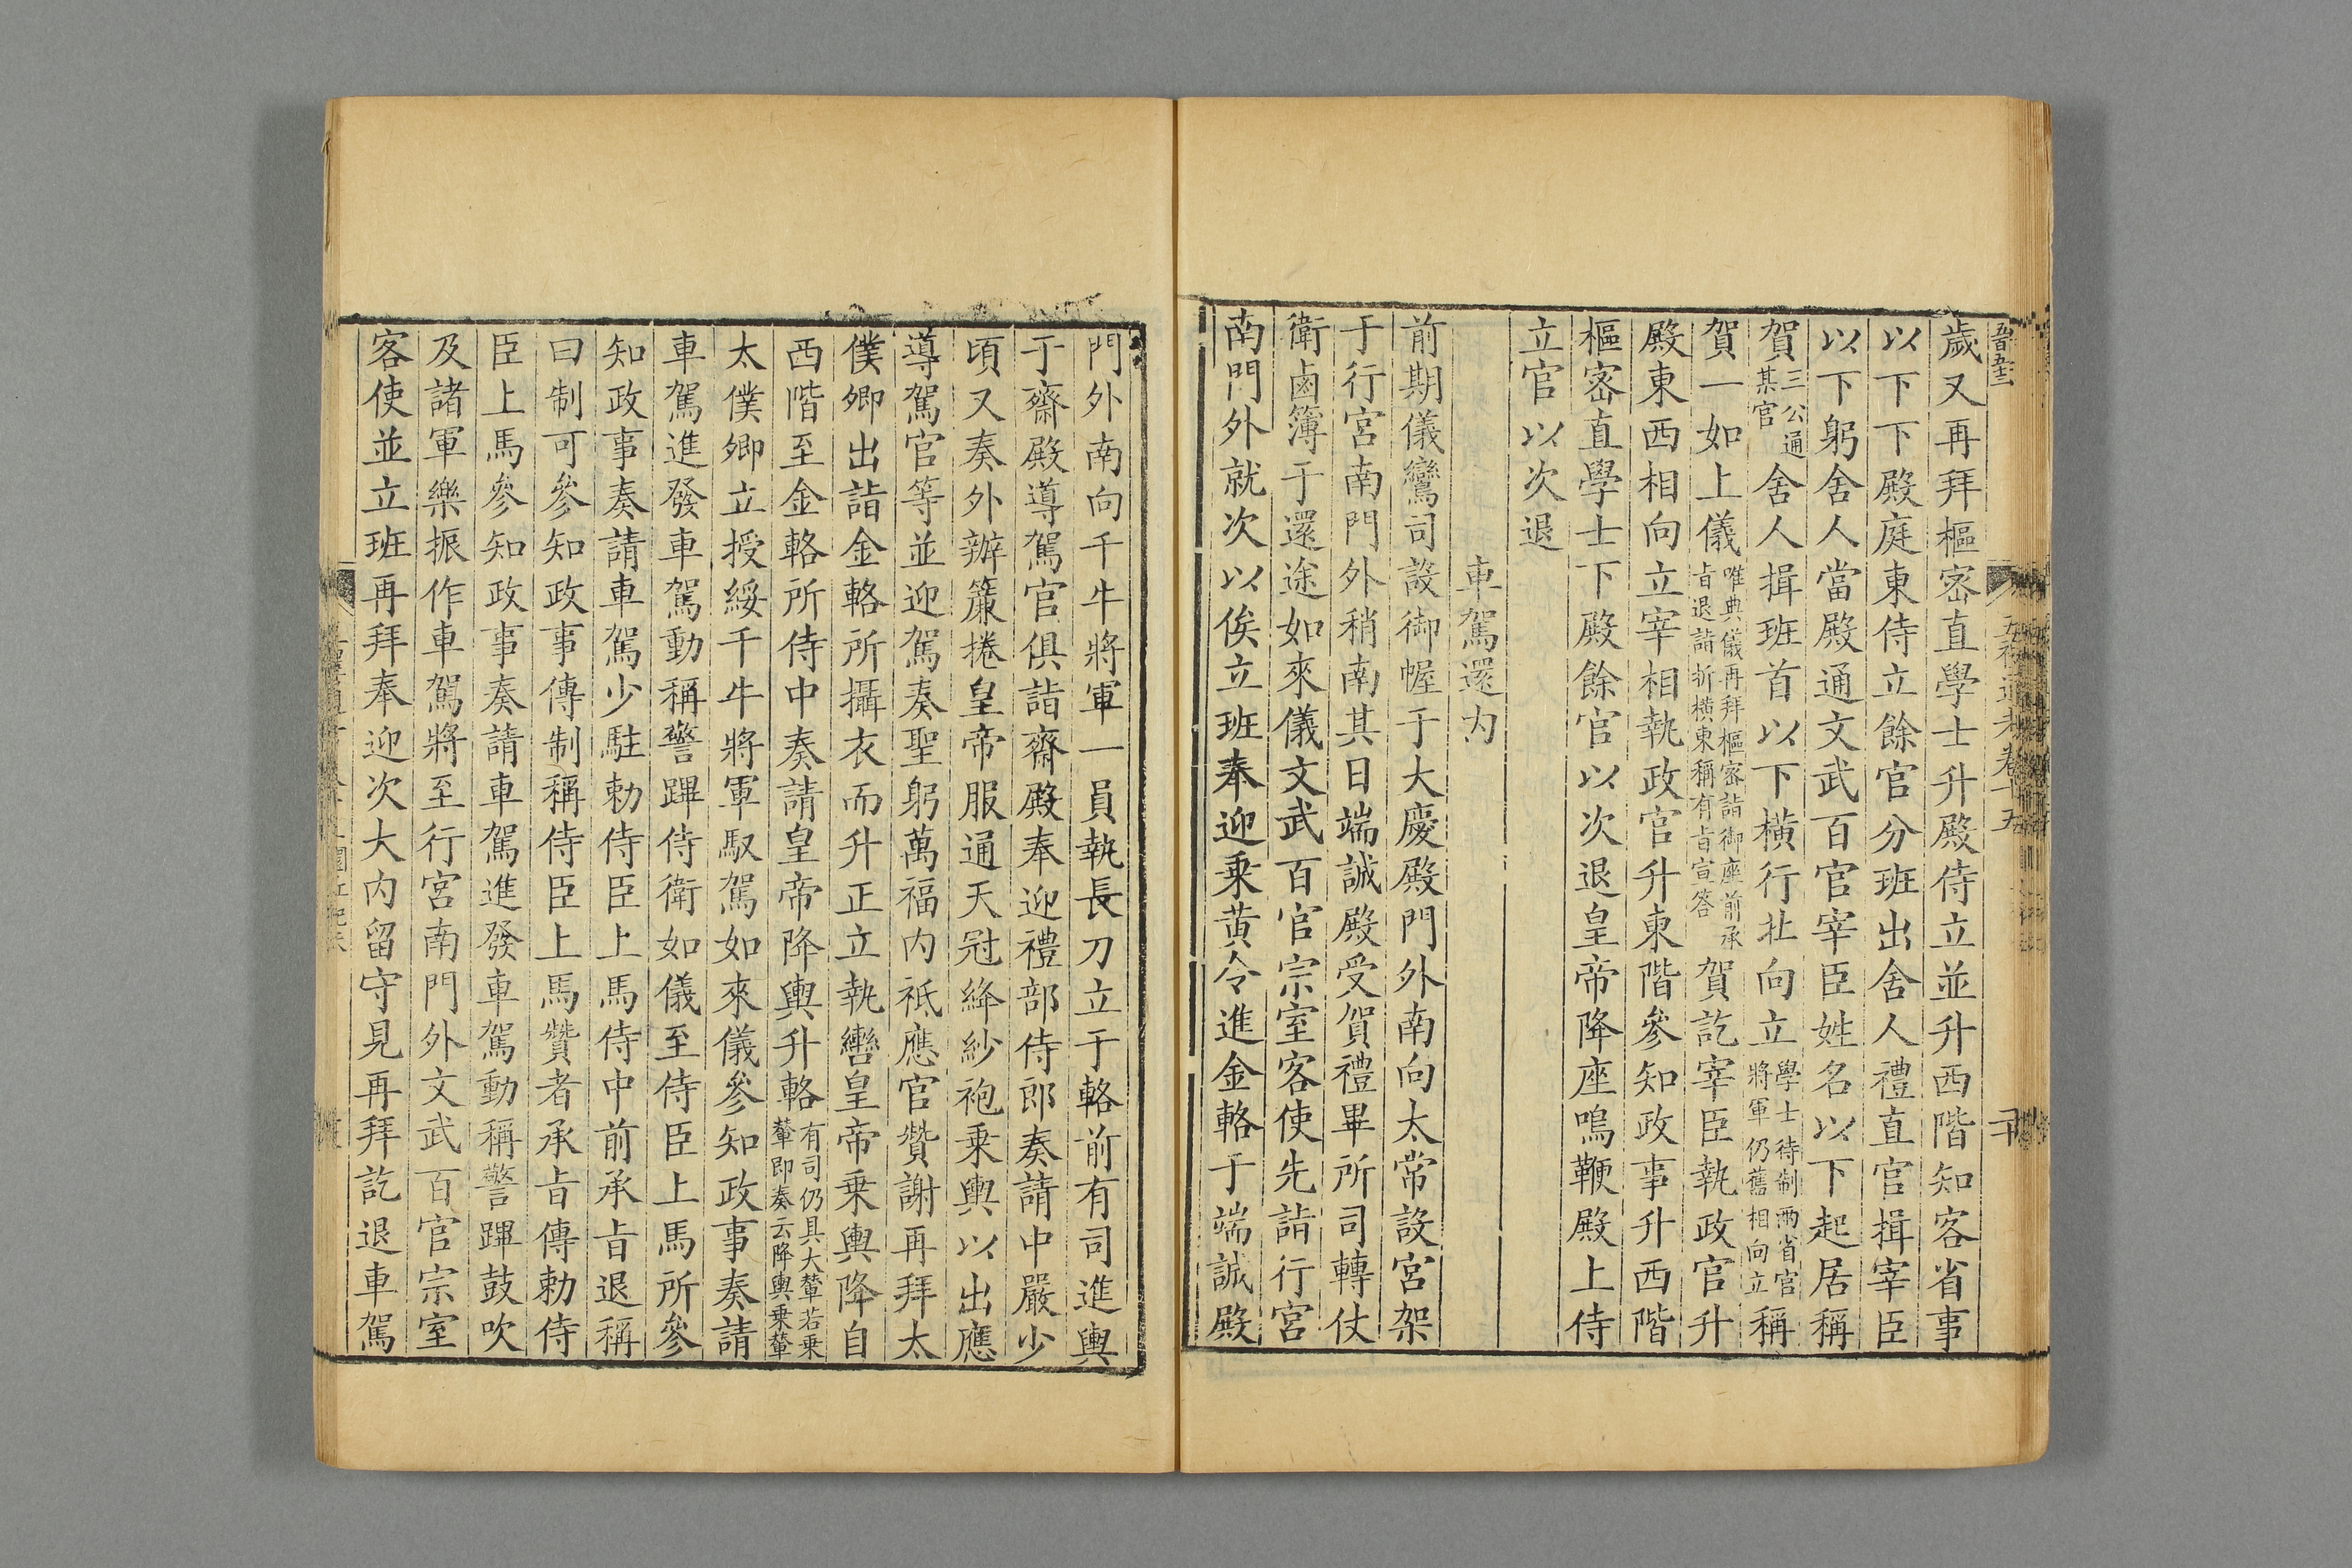 歲又再拜樞密直學士升殿侍立並升西階知客省事
以下下殿庭東侍立餘官分班出舍人禮直官揖宰臣
以下躬舍人當殿通文武百官宰臣姓名以下起居稱
賀三公通某官舍人揖班首以下橫行北向立學士待制兩省官將軍仍舊相向立稱
賀一如上儀唯典儀再拜樞密詣御座前承旨退詣折橫東稱有旨宣答賀訖宰臣執政官升
殿東西相向立宰相執政官升東階參知政事升西階
樞密直學士下殿餘官以次退皇帝降座鳴鞭殿上侍
立官以次退
車駕還内
前期儀鸞司設御幄于大慶殿門外南向太常設宮架
于行宮南門外稍南其日端誠殿受賀禮畢所司轉仗
衛鹵簿于還途如來儀文武百官宗室客使先詣行宮
南門外就次以俟立班奉迎乗黃令進金輅于端誠殿
門外南向千牛將軍一員執長刀立于輅前有司進輿
于齋殿導駕官俱詣齋殿奉迎禮部侍郎奏請中嚴少
頃又奏外辦簾捲皇帝服通天冠絳紗袍乗輿以出應
導駕官等並迎駕奏聖躬萬福内祗應官贊謝再拜太
僕卿出詣金輅所攝衣而升正立執轡皇帝乗輿降自
西階至金輅所侍中奏請皇帝降輿升輅有司仍具大輦若乗輦即奏云降輿乗輦
太僕卿立授綏千牛將軍馭駕如來儀參知政事奏請
車駕進發車駕動稱警蹕侍衛如儀至侍臣上馬所參
知政事奏請車駕少駐勅侍臣上馬侍中前承旨退稱
曰制可參知政事傳制稱侍臣上馬贊者承旨傳勅侍
臣上馬參知政事奏請車駕進發車駕動稱警蹕鼓吹
及諸軍樂振作車駕將至行宮南門外文武百官宗室
客使並立班再拜奉迎次大内留守見再拜訖退車駕